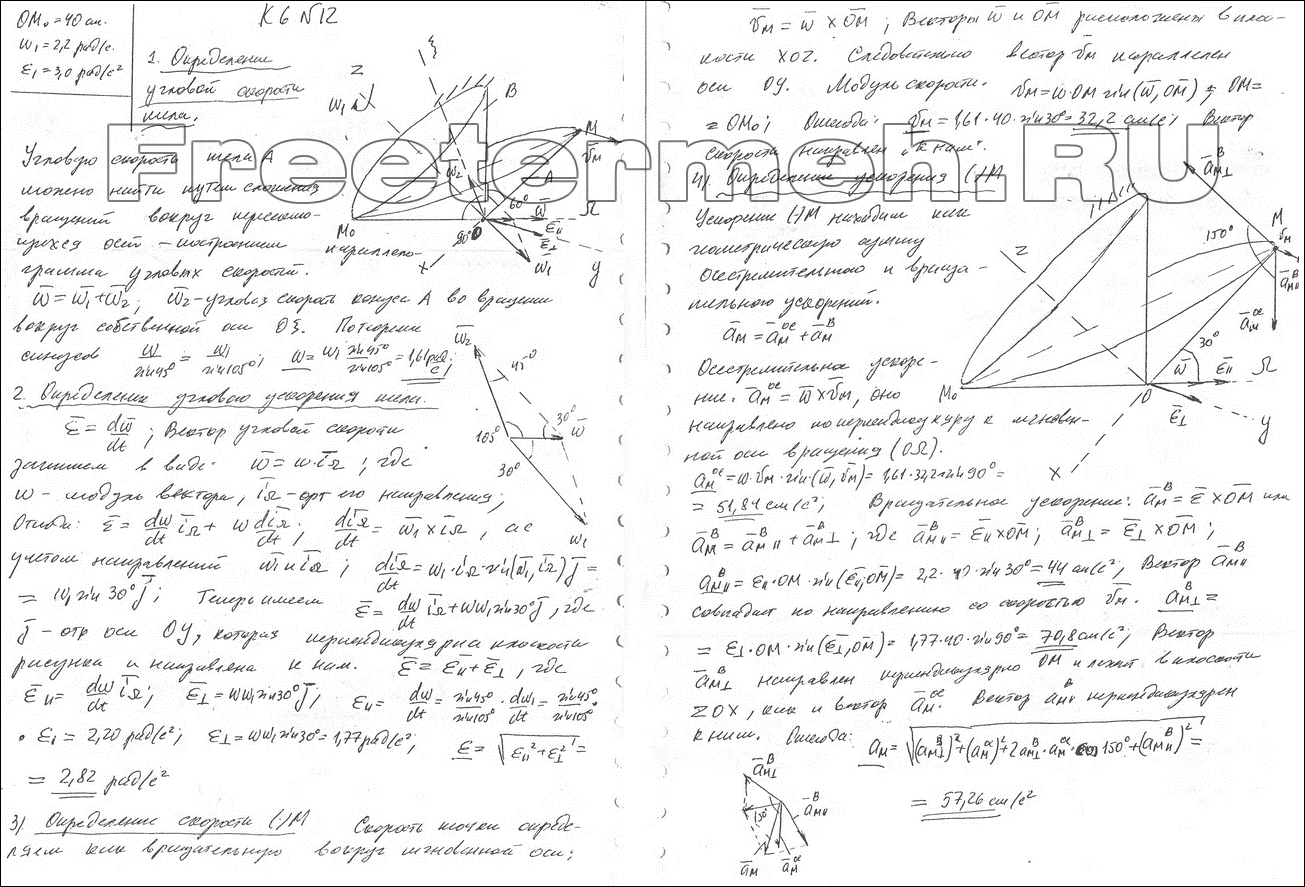 К6 №12
OM₀ = 40 см.
ω₁ = 2,2 рад/с.
ε₁ = 3,0 рад/с²
1. Определение
угловой скорости
тела.
Угловую скорость тела А
можно найти путем сложения
вращений вокруг пересекаю-
щихся осей – построением параллело-
грамма угловых скоростей.
ω̄ = ω̄₁ + ω̄₂; ω̄₂ – угловая скорость конуса А во вращении
вокруг собственной оси Oξ. По теореме
синусов ω/sin45° = ω₁/sin105°; ω = ω₁ sin45°/sin105° = 1,61 рад/с;
2. Определение углового ускорения тела.
ε̄ = dω̄/dt; Вектор угловой скорости
запишем в виде: ω̄ = ω·ī_Ω; где
ω – модуль вектора, ī_Ω – орт его направления;
Отсюда: ε̄ = dω/dt ī_Ω + ω dī_Ω/dt; dī_Ω/dt = ω̄₁ × ī_Ω, а с
учетом направлений ω̄₁ и ī_Ω; dī_Ω/dt = ω₁·i_Ω·sin(ω̄₁, ī_Ω) j̄ =
= ω₁ sin 30° j̄; Теперь имеем ε̄ = dω/dt ī_Ω + ωω₁ sin30° j̄, где
j̄ – отр оси OY, которая перпендикулярна плоскости
рисунка и направлена к нам. ε̄ = ε̄_II + ε̄_⊥, где
ε̄_II = dω/dt ī_Ω; ε̄_⊥ = ωω₁ sin30° j̄; ε_II = dω/dt = sin45°/sin105° · dω₁/dt = sin45°/sin105° ·
· ε₁ = 2,20 рад/с²; ε_⊥ = ωω₁ sin30° = 1,77 рад/с²; ε = √(ε_II² + ε_⊥²) =
= 2,82 рад/с²
3). Определение скорости (·)М Скорость точки опреде-
ляем как вращательную вокруг мгновенной оси;
V̄м = ω̄ × OM̄; Векторы ω̄ и OM̄ расположены в плос-
кости XOZ. Следовательно вектор V̄м параллелен
оси OY. Модуль скорости. Vм = ω·OM sin(ω̄, OM̄); OM =
= OM₀; Отсюда: Vм = 1,61·40·sin30° = 32,2 см/с; Вектор
скорости направлен „к нам".
4). Определение ускорения (·)М
Ускорение (·)М находим как
геометрическую сумму
осестремительного и враща-
тельного ускорений.
āм = āм^ос + āм^в
Осестремительное ускоре-
ние. āм^ос = ω̄ × V̄м, оно
направлено по перпендикуляру к мгновен-
ной оси вращения (OΩ).
aм^ос = ω·Vм·sin(ω̄, V̄м) = 1,61·32,2·sin90° =
= 51,84 см/с²; Вращательное ускорение: āм^в = ε̄ × OM̄ или
āм^в = āм_II^в + āм_⊥^в; где āм_II^в = ε̄_II × OM̄; āм_⊥^в = ε̄_⊥ × OM̄;
aм_II^в = ε_II·OM·sin(ε̄_II; OM̄) = 2,2·40·sin30° = 44 см/с², Вектор āм_II^в
совпадает по направлению со скоростью V̄м. aм_⊥^в =
= ε_⊥·OM·sin(ε̄_⊥, OM̄) = 1,77·40·sin90° = 70,8 см/с²; Вектор
āм_⊥^в направлен перпендикулярно OM и лежит в плоскости
ZOX, как и вектор āм^ос. Вектор āм_II^в перпендикулярен
к ним. Отсюда: aм = √((aм_⊥^в)² + (aм^ос)² + 2aм_⊥^в·aм^ос·cos150° + (aм_II^в)²) =
= 57,26 см/с²
Freetermeh.RU